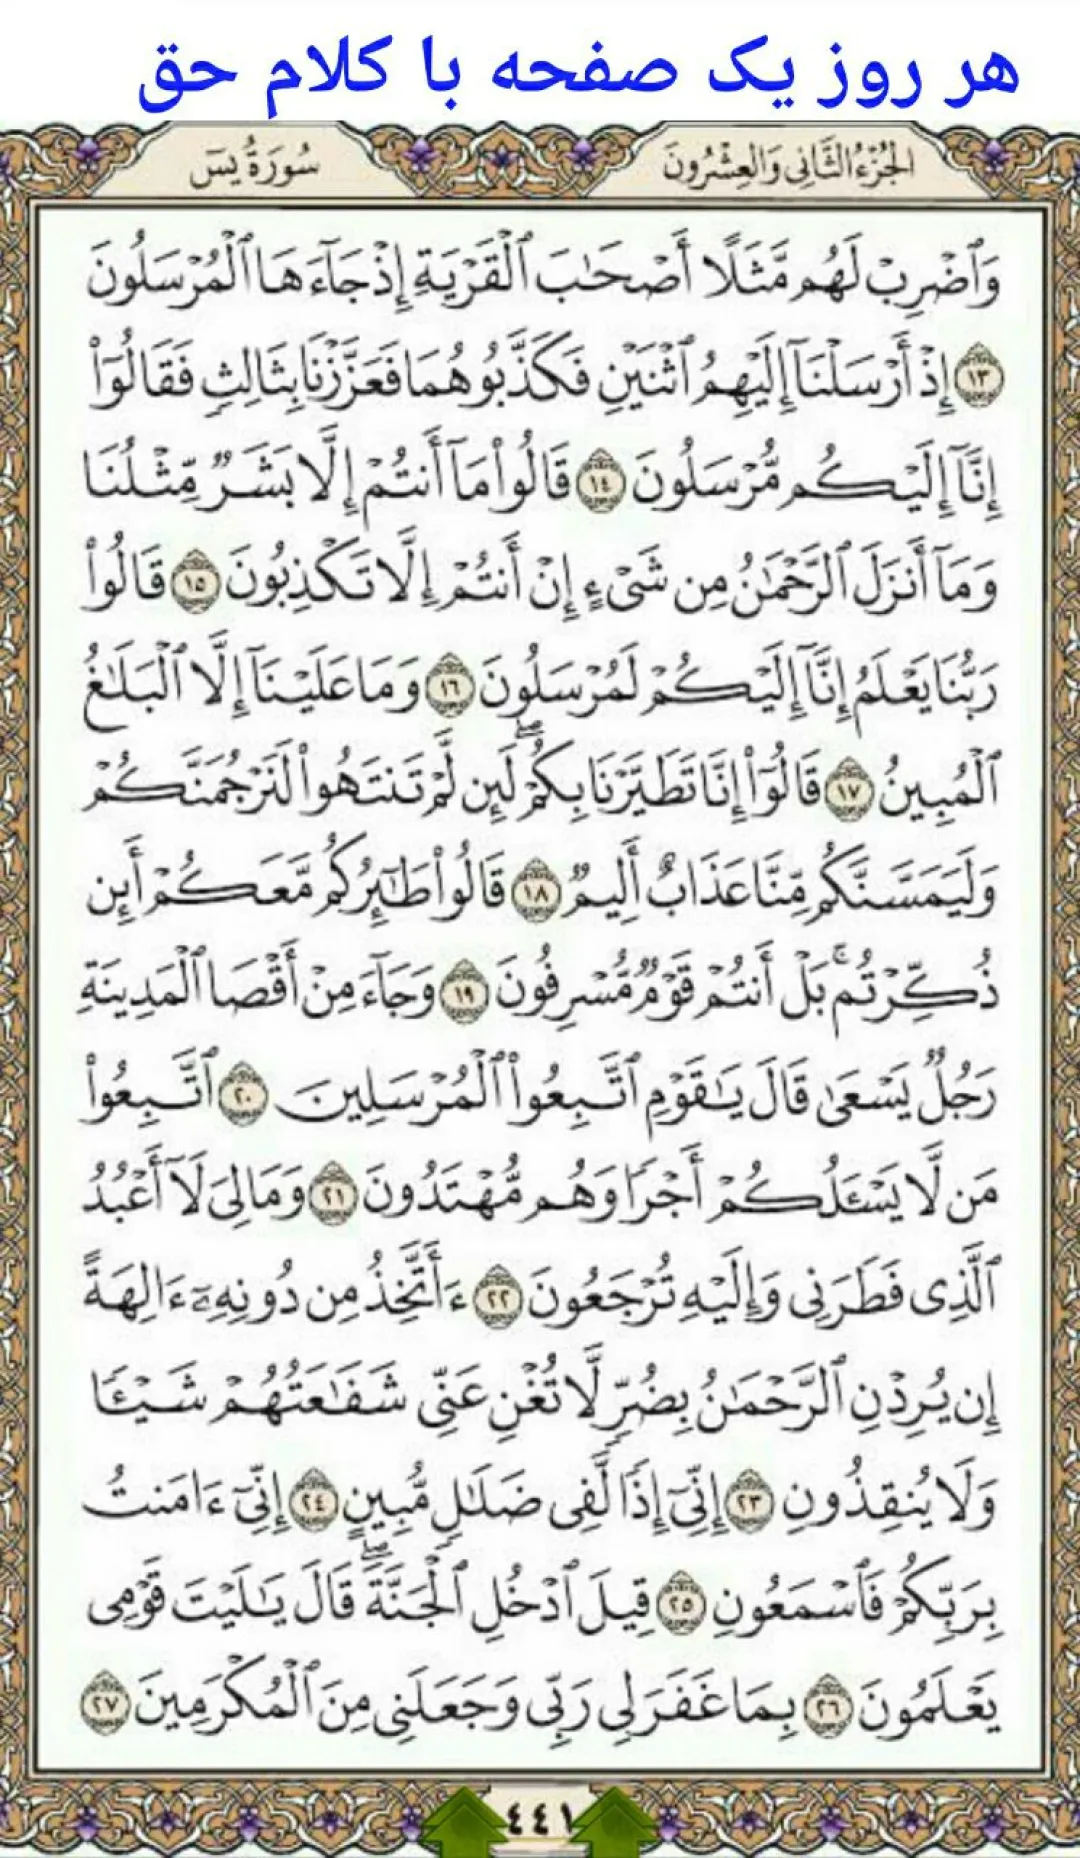 هر روز یک صفحه با کلام حق
الجُزْءُ الثَّانِي وَالعِشْرُونَ
سُورَةُ يسٓ
وَٱضْرِبْ لَهُم مَّثَلًا أَصْحَٰبَ ٱلْقَرْيَةِ إِذْ جَآءَهَا ٱلْمُرْسَلُونَ
١٣ إِذْ أَرْسَلْنَآ إِلَيْهِمُ ٱثْنَيْنِ فَكَذَّبُوهُمَا فَعَزَّزْنَا بِثَالِثٍ فَقَالُوٓا۟
إِنَّآ إِلَيْكُم مُّرْسَلُونَ ١٤ قَالُوا۟ مَآ أَنتُمْ إِلَّا بَشَرٌ مِّثْلُنَا
وَمَآ أَنزَلَ ٱلرَّحْمَٰنُ مِن شَىْءٍ إِنْ أَنتُمْ إِلَّا تَكْذِبُونَ ١٥ قَالُوا۟
رَبُّنَا يَعْلَمُ إِنَّآ إِلَيْكُمْ لَمُرْسَلُونَ ١٦ وَمَا عَلَيْنَآ إِلَّا ٱلْبَلَٰغُ
ٱلْمُبِينُ ١٧ قَالُوٓا۟ إِنَّا تَطَيَّرْنَا بِكُمْ ۖ لَئِن لَّمْ تَنتَهُوا۟ لَنَرْجُمَنَّكُمْ
وَلَيَمَسَّنَّكُم مِّنَّا عَذَابٌ أَلِيمٌ ١٨ قَالُوا۟ طَٰٓئِرُكُم مَّعَكُمْ أَئِن
ذُكِّرْتُم ۚ بَلْ أَنتُمْ قَوْمٌ مُّسْرِفُونَ ١٩ وَجَآءَ مِنْ أَقْصَا ٱلْمَدِينَةِ
رَجُلٌ يَسْعَىٰ قَالَ يَٰقَوْمِ ٱتَّبِعُوا۟ ٱلْمُرْسَلِينَ ٢٠ ٱتَّبِعُوا۟
مَن لَّا يَسْـَٔلُكُمْ أَجْرًا وَهُم مُّهْتَدُونَ ٢١ وَمَا لِىَ لَآ أَعْبُدُ
ٱلَّذِى فَطَرَنِى وَإِلَيْهِ تُرْجَعُونَ ٢٢ ءَأَتَّخِذُ مِن دُونِهِۦٓ ءَالِهَةً
إِن يُرِدْنِ ٱلرَّحْمَٰنُ بِضُرٍّ لَّا تُغْنِ عَنِّى شَفَٰعَتُهُمْ شَيْـًٔا
وَلَا يُنقِذُونِ ٢٣ إِنِّىٓ إِذًا لَّفِى ضَلَٰلٍ مُّبِينٍ ٢٤ إِنِّىٓ ءَامَنتُ
بِرَبِّكُمْ فَٱسْمَعُونِ ٢٥ قِيلَ ٱدْخُلِ ٱلْجَنَّةَ ۖ قَالَ يَٰلَيْتَ قَوْمِى
يَعْلَمُونَ ٢٦ بِمَا غَفَرَ لِى رَبِّى وَجَعَلَنِى مِنَ ٱلْمُكْرَمِينَ ٢٧
٤٤١